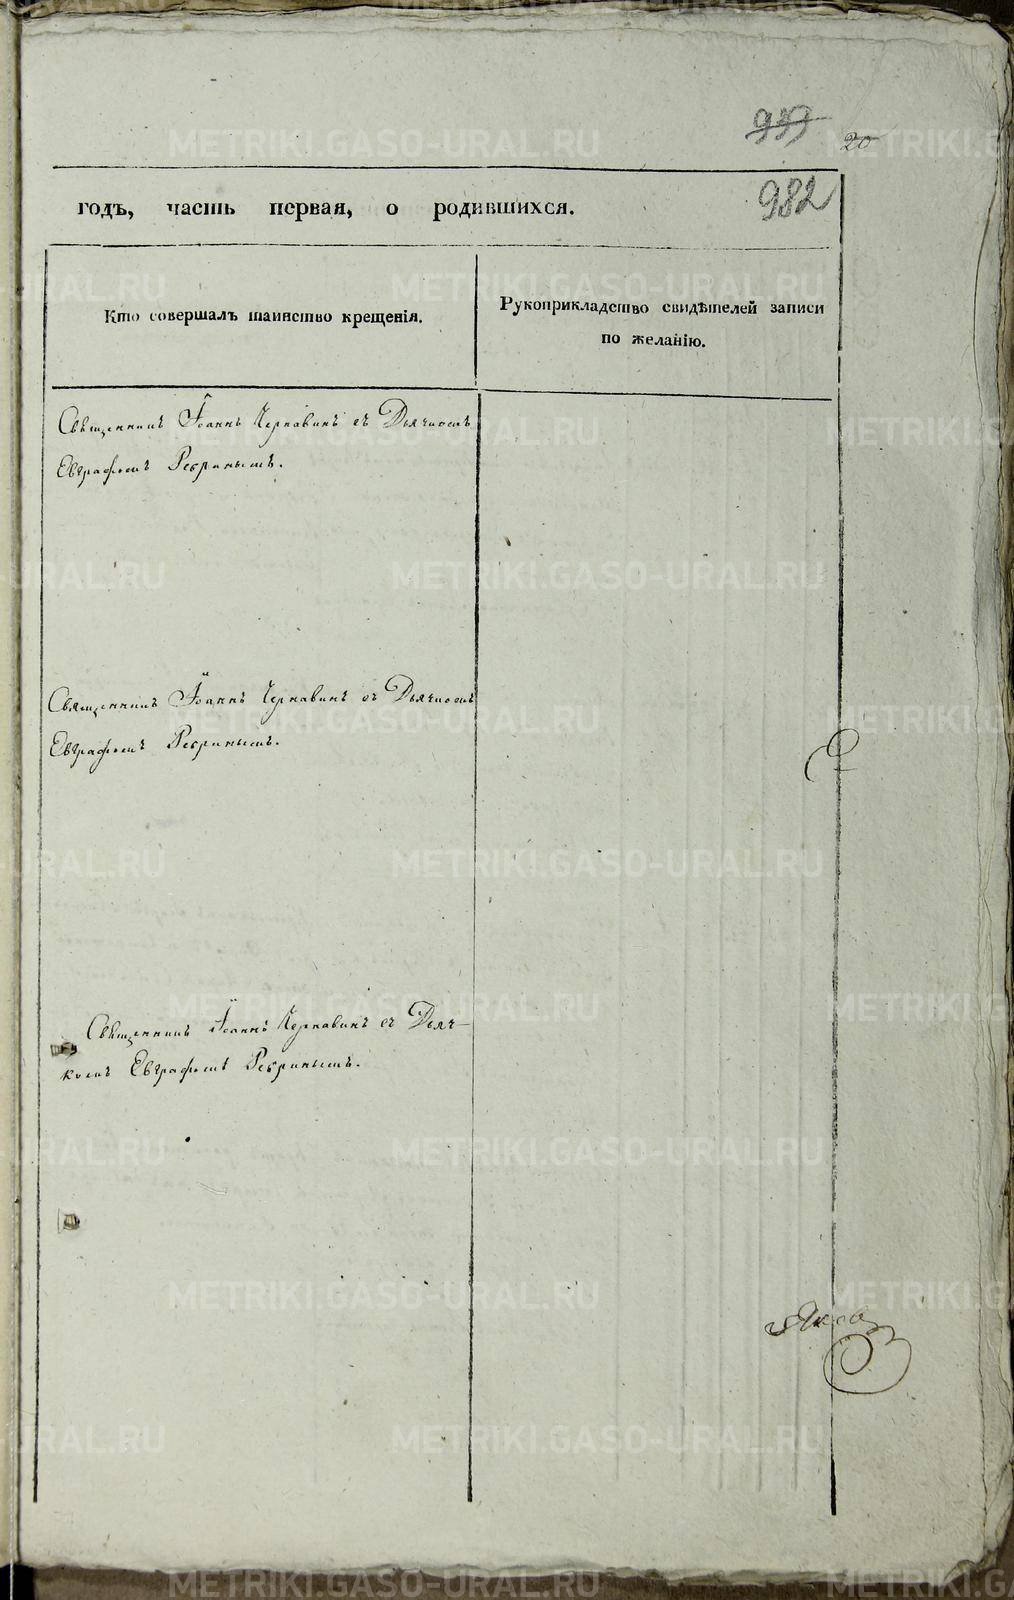 939
20
982
годъ, часть первая, о родившихся.
Кто совершалъ таинство крещенія.
Рукоприкладство свидѣтелей записи
по желанію.
Священникъ Іоаннъ Чернавинъ съ Дьячкомъ
Евграфомъ Ребринымъ.
Священникъ Іоаннъ Чернавинъ съ Дьячкомъ
Евграфомъ Ребринымъ.
Священникъ Іоаннъ Чернавинъ съ Дьяч-
комъ Евграфомъ Ребринымъ.
METRIKI.GASO-URAL.RU